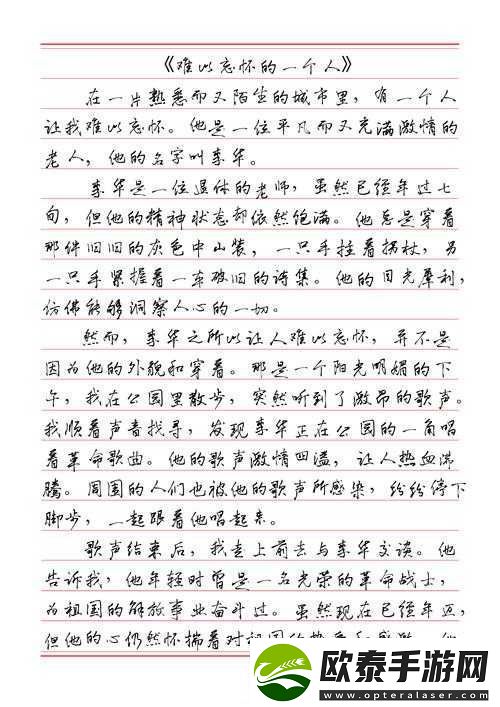 《难以忘怀的一个人》
在一片熟悉而又陌生的城市里，有一个人
让我难以忘怀。他是一位平凡而又充满激情的
老人，他的名字叫李华。
李华是一位退休的老师，虽然已经年过七
旬，但他的精神状态却依然饱满。他总是穿着
那件旧旧的灰色中山装，一只手拄着拐杖，另
一只手紧握着一本破旧的诗集。他的目光犀利，
仿佛能够洞察人心的一切。
然而，李华之所以让人难以忘怀，并不是
因为他的外貌和穿着。那是一个阳光明媚的下
午，我在公园里散步，突然听到了激昂的歌声。
我顺着声音找寻，发现李华正在公园的一角唱
着革命歌曲。他的歌声激情四溢，让人热血沸
腾。周围的人们也被他的歌声所感染，纷纷停下
脚步，一起跟着他唱起来。
歌声结束后，我走上前去与李华交谈。他
告诉我，他年轻时曾是一名光荣的革命战士，
为祖国的解放事业奋斗过。虽然现在已经年迈，
但他的心仍然怀揣着对祖国的热
欧泰手游网
www.opteralaser.com